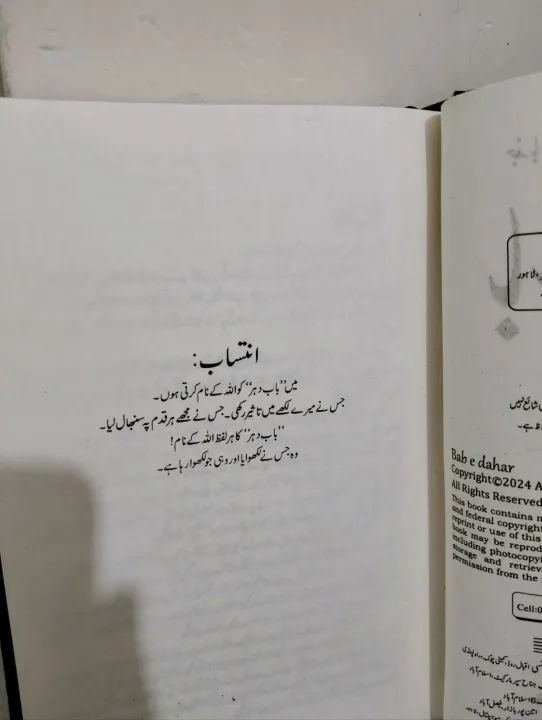 انتساب:
میں ”باب دہر“ کو اللہ کے نام کرتی ہوں۔
جس نے میرے لکھے میں تاثیر رکھی۔ جس نے مجھے ہر قدم پہ سنبھال لیا۔
”باب دہر“ کا ہر لفظ اللہ کے نام!
وہ جس نے لکھوایا اور وہی جو لکھوا رہا ہے۔
لاہور
شائع نہیں
Bab e dahar
Copyright©2024 A
All Rights Reserved
This book contains
and federal copyright
reprint or use of this
book may be reprod
including photocopyi
storage and retriev
permission from the
Cell:0